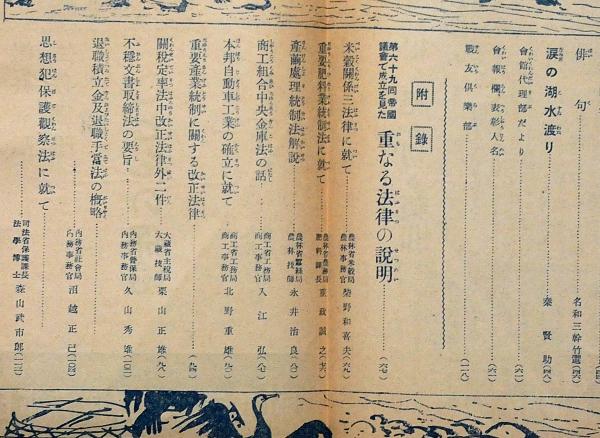 俳句……名和三幹竹選
涙の湖水渡り……秦賢助
會館代理部だより
會報欄表彰人名
戰友俱樂部……(一一八)
附錄
第六十九回帝國議會で成立を見た 重なる法律の說明……(六七)
米穀關係三法律に就て……農林省米穀局
重要肥料業統制法に就て……農林省農務局肥料課長 重政誠之
產繭處理統制法解說……農林省蠶絲局農林技師 永井治良
商工組合中央金庫法の話……商工省工務局商工事務官 入江弘
本邦自動車工業の確立に就て……商工省工務局商工事務官 北野重雄
重要產業統制に關する改正法律
關稅定率法中改正法律外二件……大藏省主稅局大藏技師 栗山正雄
不穩文書取締法の要旨……內務省警保局內務事務官 久山秀雄
退職積立金及退職手當法の槪略……內務省社會局內務事務官 沼越正己
思想犯保護觀察法に就て……司法省保護課長法學博士 森山武市郎